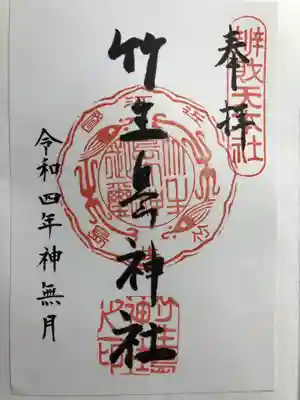 奉拝
竹生島神社
令和四年神無月
竹生島
神社
之印